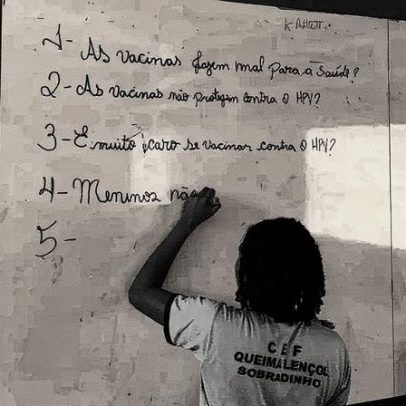 KAHOOT
1- As vacinas fazem mal para a saúde?
2- As vacinas não protegem contra o HPV?
3- É muito caro se vacinar contra o HPV?
4- Meninos não
5-
CEF
QUEIMA LENÇOL
SOBRADINHO